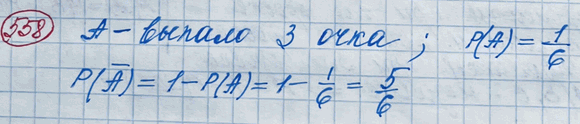 558 A - выпало 3 очка ; P(A) = 1/6
P(A̅) = 1 - P(A) = 1 - 1/6 = 5/6